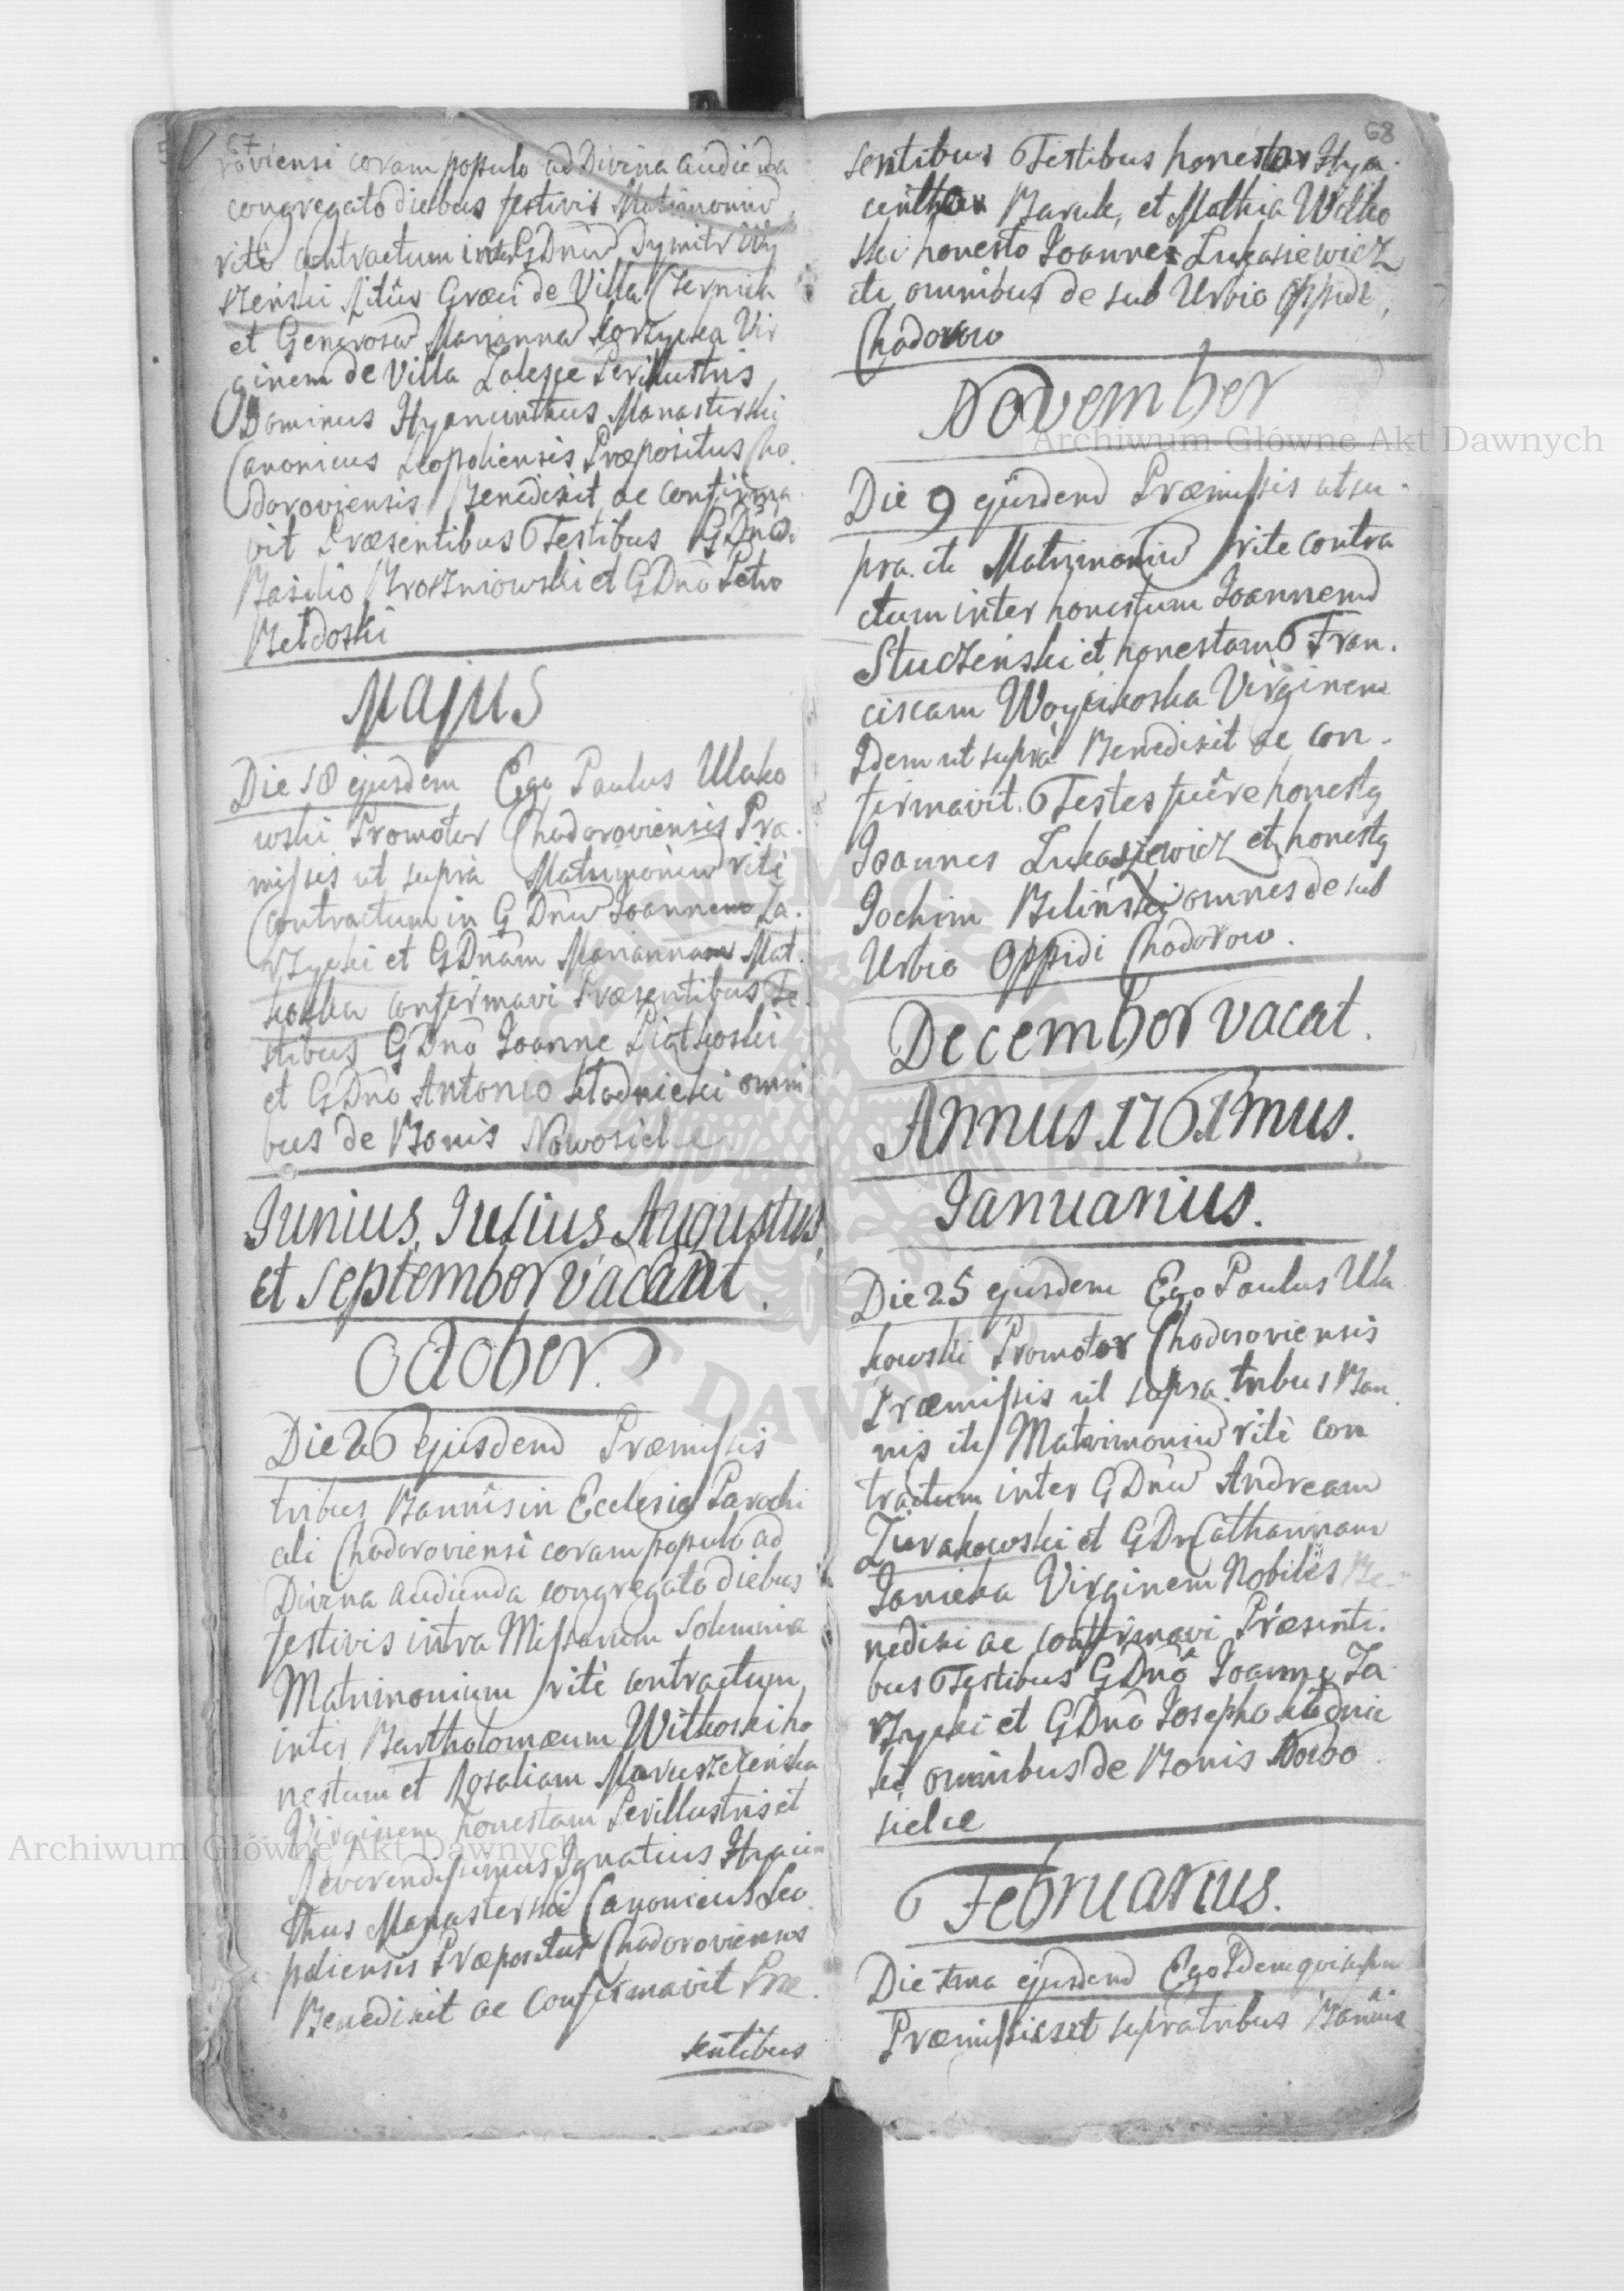 67
roviensi coram populo ad Divina audienda
congregato diebus festivis Matrimoniu
rite contractum inter GDnu Dymitr
szenski Ritus Græci de Villa Czernica
et Generosa Marianna Korzycka Vir
ginem de Villa Zalesce Perillustris
Dominus Hyacinthus Manasterski
Canonicus Leopoliensis Præpositus Cho
doroviensis Benedixit ac confirma
vit Præsentibus Testibus GDno
Basilio Brozniowski et GDno Petro
Beldoski
Majus
Die 18 ejusdem Ego Paulus Ulako
wski Promotor Chodoroviensis Præ
missis ut supra Matrimoniu rite
Contractum in GDnu Joannem Za
rzycki et GDnam Mariannam Mat
koska confirmavi Præsentibus Te
stibus GDno Joanne Piątkoski
et GDno Antonio Kładnicki omni
bus de Bonis Nowosielce
Junius, Julius, Augustus,
et September vacant.
October.
Die 26 ejusdem Præmissis
tribus Bannis in Ecclesia Parochi
ali Chodoroviensi coram populo ad
Divina audienda congregato diebus
festivis intra Missarum Solemnia
Matrimonium rite contractum
inter Bartholomæum Witkoski ho
nestum et Rosaliam Maruszczenska
Virginem honestam Perillustris et
Reverendissimus Ignatius Hyacin
thus Manasterski Canonicus Leo
poliensis Præpositus Chodoroviensis
Benedixit ac confirmavit Præ
sentibus
68
sentibus Testibus honestis Hya
cintho Baruk, et Mathia Witko
ski honesto Joanne Lukasiewicz
etc omnibus de sub Urbio Oppidi
Chodorow
November
Die 9 ejusdem Præmissis ut su
pra. etc Matrimoniu rite contra
ctum inter honestum Joannem
Stuczenski et honestam Fran
ciscam Woycikoska Virginem
Idem ut supra Benedixit ac con
firmavit. Testes fuêre honesty
Joannes Lukasiewicz et honesty
Jochim Belinski omnes de sub
Urbio Oppidi Chodorow.
December vacat.
Annus 1761mus.
Januarius.
Die 25 ejusdem Ego Paulus Ula
kowski Promotor Chodoroviensis
Præmissis ut supra. tribus Ban
nis etc Matrimoniu rite con
tractum inter GDnu Andream
Zurakowski et GDn Catharinam
Janicka Virginem Nobiles Be
nedixi ac confirmavi Præsenti
bus Testibus GDno Joanne Za
rzycki et GDno Josepho Kładnic
ki omnibus de Bonis Nowo
sielce
Februarius.
Die 1ma ejusdem Ego Idem qui supra
Præmissis et supra tribus Bannis
Archiwum Główne Akt Dawnych
Archiwum Główne Akt Dawnych